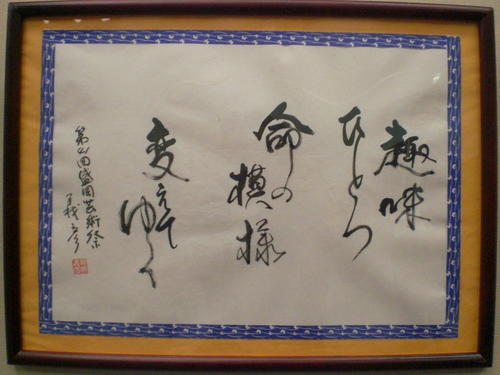 趣味
ひとつ
命の
模様
変えて
ゆく
第41回盛岡芸術祭